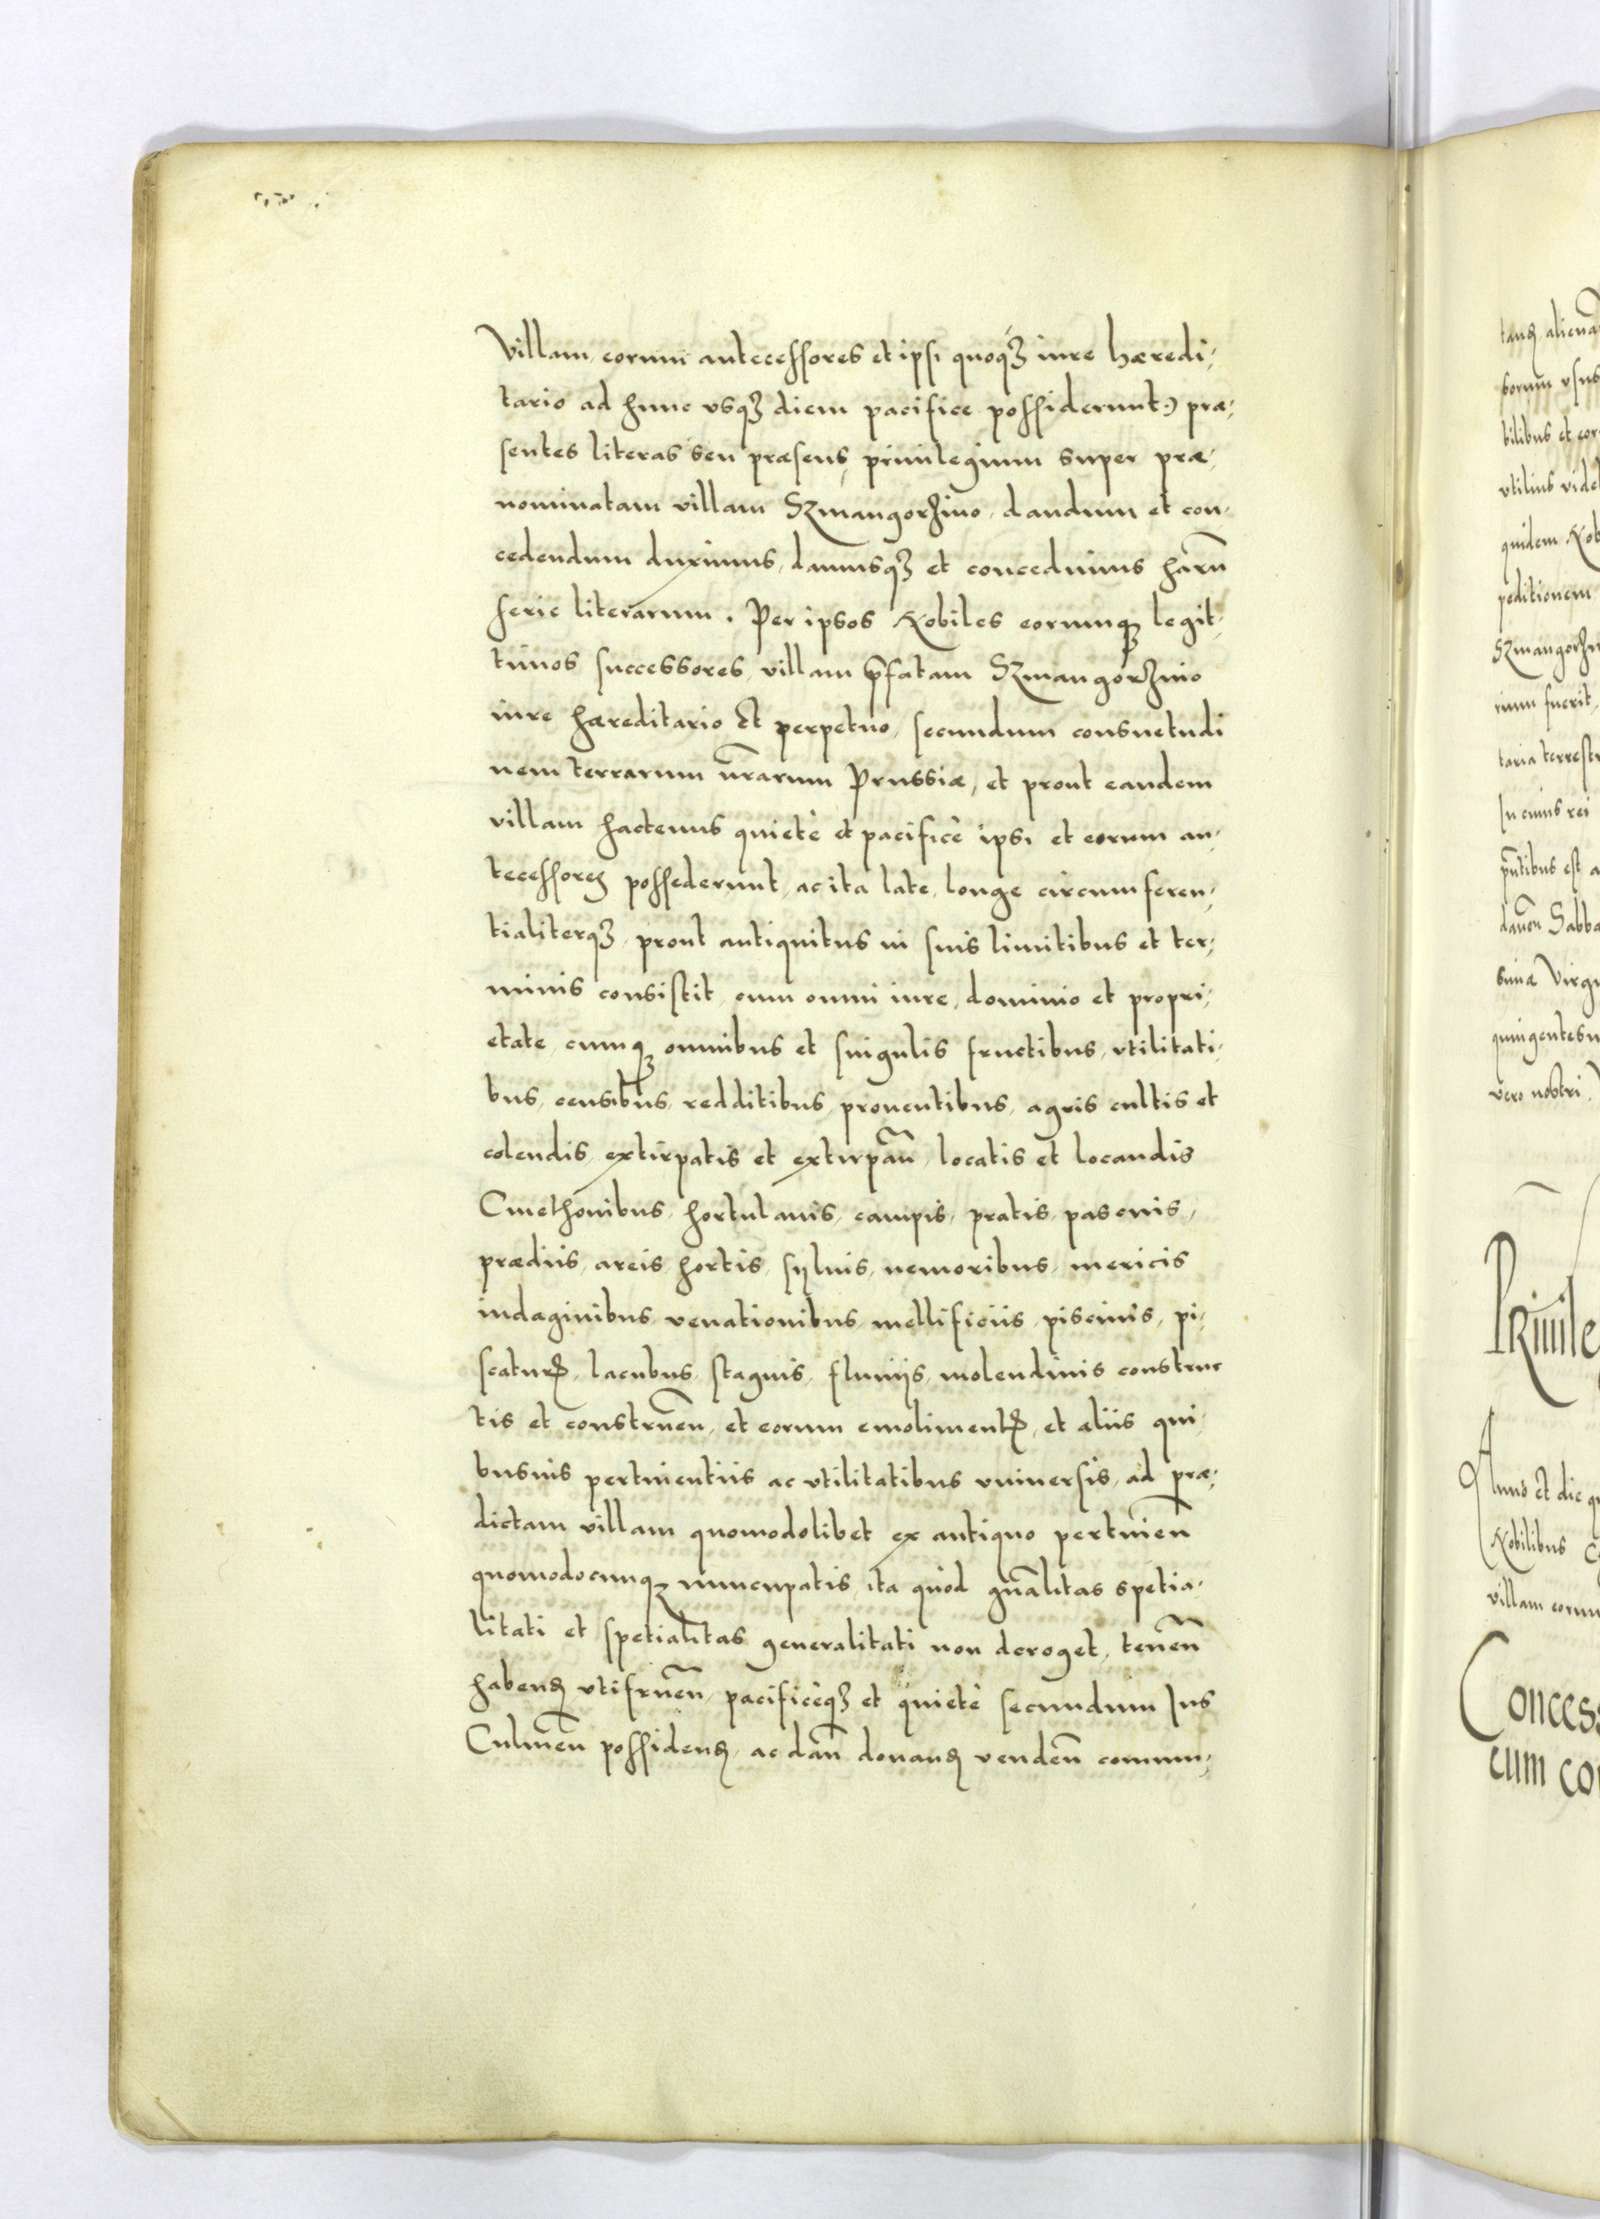 villam eorum antecessores et ipsi quoq3 iure hæredi,
tario ad hunc vsq3 diem pacifice possiderunt) præ,
sentes literas seu præsens priuilegium super præ,
nominatam villam Szmangorzino dandum et con,
cedendum duximus, damusq3 et concedimus harū
serie literarum. Per ipsos Nobiles eorumq3 legit,
timos successores, villam p̄fatam Szmangorzino
iure hæreditario et perpetuo, secundum consuetudi
nem terrarum nr̄arum Prussiæ, et prout eandem
villam hactenus quietè et pacificè ipsi et eorum an,
tecessores possederunt, ac ita late, longe circumferen,
tialiterq3, prout antiquitus in suis limitibus et ter,
minis consistit, cum omni iure, dominio et propri,
etate, cumq3 omnibus et singulis fructibus, vtilitati,
bus, censibus, redditibus, prouentibus, agris cultis et
colendis, extirpatis et extirpan̄, locatis et locandis
Cmethonibus, hortulanis, campis, pratis, pascuis,
prædiis, areis, hortis, syluis, nemoribus, mericis
indaginibus, venationibus, mellificiis, piscinis, pi,
scaturꝭ, lacubus, stagnis, fluuijs, molendinis construc
tis et construen̄, et eorum emolimentꝭ, et aliis qui,
busuis pertinentiis ac vtilitatibus vniuersis, ad præ,
dictam villam quomodolibet ex antiquo pertinen̄
quomodocunq3 nuncupatis, ita quòd gn̄alitas spetia,
litati et spetialitas generalitati non deroget, tenen̄
habenꝭ vtifruen̄, pacificèq3 et quietè secundum Ius
Culmen̄ possidenꝭ, ac dan̄ donanꝭ venden̄ commu,
tanꝭ aliena
borum vsus
bilibus et eor
vtilius videl
quidem Nob
peditionem
Szmangorzin
rium fuerit,
taria terrestr
In cuius rei
pn̄tibus est a
Sabba
quingentesi
vero nostri.
Priuile
Anno et die q
Nobilibus
villam eorum
Concess
cum con